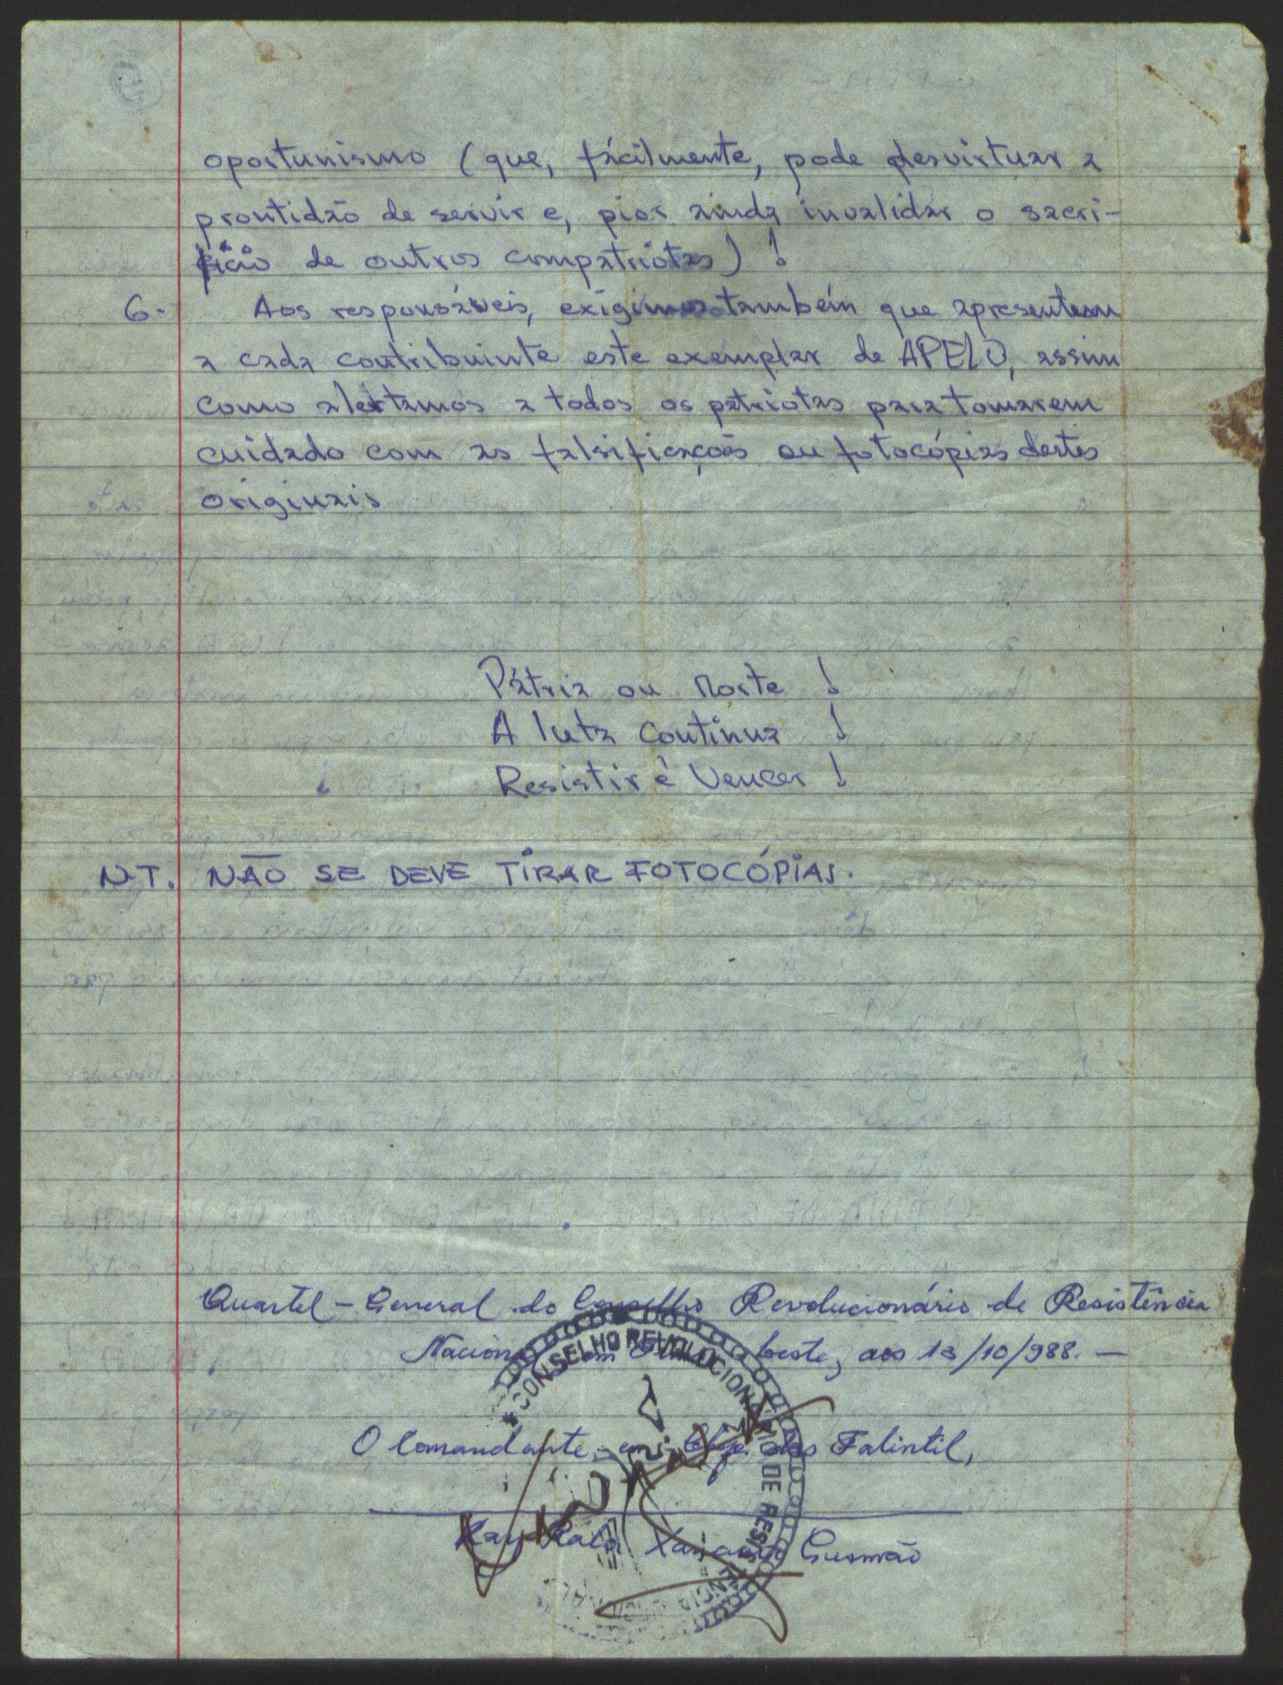 oportunismo (que, fácilmente, pode desvirtuar a
prontidão de servir e, pior ainda, invalidar o sacri-
fício de outros compatriotas) !
6- Aos responsáveis, exigimos também que apresentem
a cada contribuinte este exemplar de APELO, assim
como alertamos a todos os patriotas para tomarem
cuidado com as falsificações ou fotocópias destes
originais
Pátria ou Morte !
A luta Continua !
Resistir é Vencer !
N.T. NÃO SE DEVE TIRAR FOTOCÓPIAS.
Quartel-General do Conselho Revolucionário de Resistência
Nacional em Timor Leste, aos 13/10/988. —
CONSELHO REVOLUCIONÁRIO DE RESISTÊNCIA
O Comandante-em-Chefe das Falintil,
Kay Rala Xanana Gusmão